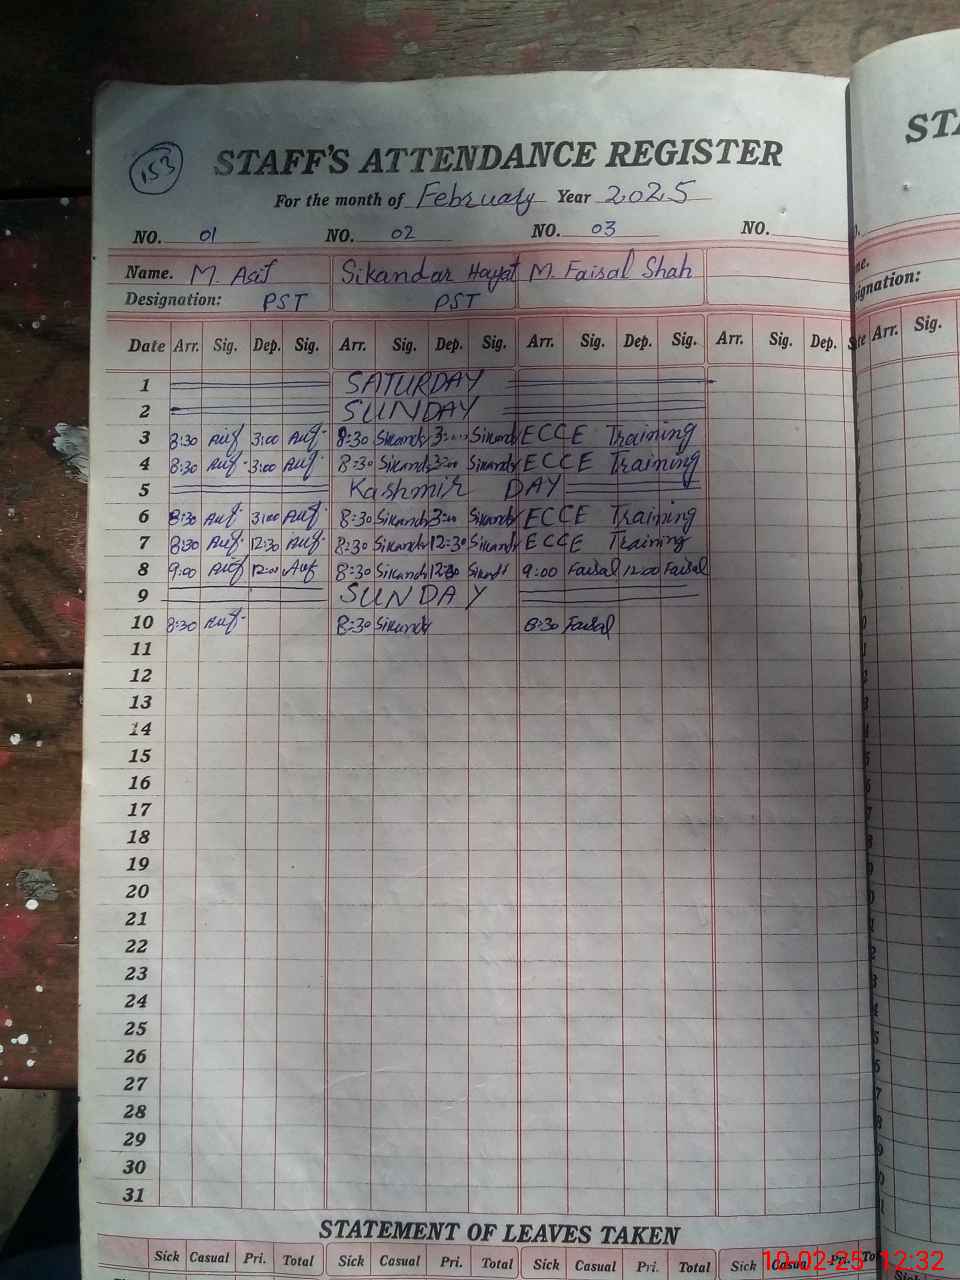 153
STAFF'S ATTENDANCE REGISTER
For the month of February Year 2025
NO. 01 NO. 02 NO. 03 NO.
Name. M. Asif Sikandar Hayat M. Faisal Shah
Designation: PST PST
Date Arr. Sig. Dep. Sig. Arr. Sig. Dep. Sig. Arr. Sig. Dep. Sig. Arr. Sig. Dep.
1 SATURDAY
2 SUNDAY
3 8:30 Asif 3:00 Asif 8:30 Sikandr 3:00 Sikandr ECCE Training
4 8:30 Asif 3:00 Asif 8:30 Sikandr 3:00 Sikandr ECCE Training
5 Kashmir DAY
6 8:30 Asif 3:00 Asif 8:30 Sikandr 3:00 Sikandr ECCE Training
7 8:30 Asif 12:30 Asif 8:30 Sikandr 12:30 Sikandr ECCE Training
8 9:00 Asif 12:00 Asif 8:30 Sikandr 12:30 Sikandr 9:00 Faisal 12:00 Faisal
9 SUNDAY
10 8:30 Asif 8:30 Sikandr 8:30 Faisal
11
12
13
14
15
16
17
18
19
20
21
22
23
24
25
26
27
28
29
30
31
STATEMENT OF LEAVES TAKEN
Sick Casual Pri. Total Sick Casual Pri. Total Sick Casual Pri. Total Sick Casual Pri. To
STA
ignation:
Arr. Sig.
10-02-25 12:32